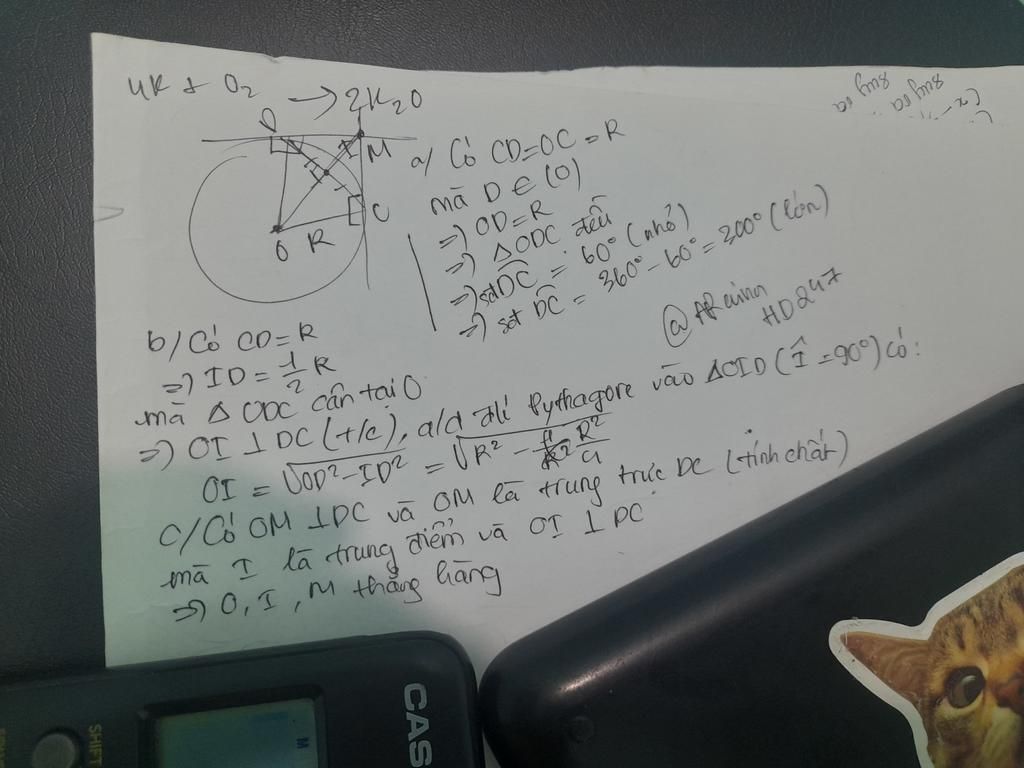 4K + O₂ → 2K₂O
D
M
C
O
R
a/ Có CD=OC=R
mà D ∈ (O)
=) OD=R
=) △ODC đều
=) sđ DC = 60° (nhỏ)
=) sđ DC = 360° - 60° = 300° (lớn)
HD247
b/ Có CD=R
=) ID = 1/2 R
mà △ ODC cân tại O
=) OI ⊥ DC (t/c), a/d đlí Pythagore vào △OID (Î =90°) có:
OI = √OD²-ID² = √R² - R²/4
c/ Có OM ⊥DC và OM là trung trực DC (tính chất)
mà I là trung điểm và OI ⊥ DC
=) O, I, M thẳng hàng
CAS
SHIFT
M